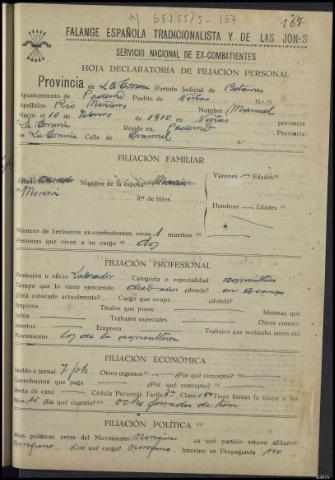 65255/5-167
167
FALANGE ESPAÑOLA TRADICIONALISTA Y DE LAS JON-S
SERVICIO NACIONAL DE EX-COMBATIENTES
HOJA DECLARATORIA DE FILIACIÓN PERSONAL
Provincia de La Coruña Partido Judicial de Betanzos
Ayuntamiento de Paderne Pueblo de Viñas N.º
Apellidos Rio Nombre Manuel
Nació el 10 de Febrero de 1910 en Viñas provincia
La Coruña Reside en Paderne provincia
de La Coruña Calle de n.º
FILIACIÓN FAMILIAR
Estado Nombre de la esposa Varones — Edades
n.º de hijos
Hembras — Edades
Número de hermanos ex-combatientes, vivos 1 muertos
Personas que viven a su cargo dos
FILIACIÓN PROFESIONAL
Profesión u oficio Labrador Categoría o especialidad agricultura
Tiempo que lo viene ejerciendo ¿dónde? en su casa
¿Está colocado actualmente? Cargo que ocupa ¿dónde?
Empresa Títulos que posee Idiomas que
habla Trabajos especiales Otros conoci-
mientos Empresa Trabajos que realizaba antes del
Movimiento los de la agricultura
FILIACIÓN ECONÓMICA
Sueldo o jornal 7 pts Otros ingresos ¿Por qué concepto?
Contribución que paga ¿Por qué concepto?
Renta de casa Cédula Personal Tarifa Clase Tiene bienes la mujer o los
hijos si ¿En qué cuantía? ocho ferrados de
FILIACIÓN POLÍTICA
Ideas políticas antes del Movimiento ninguna ¿a qué partido estuvo afiliado?
ninguno ¿Con qué cargo? ninguno Intervino en Propaganda no